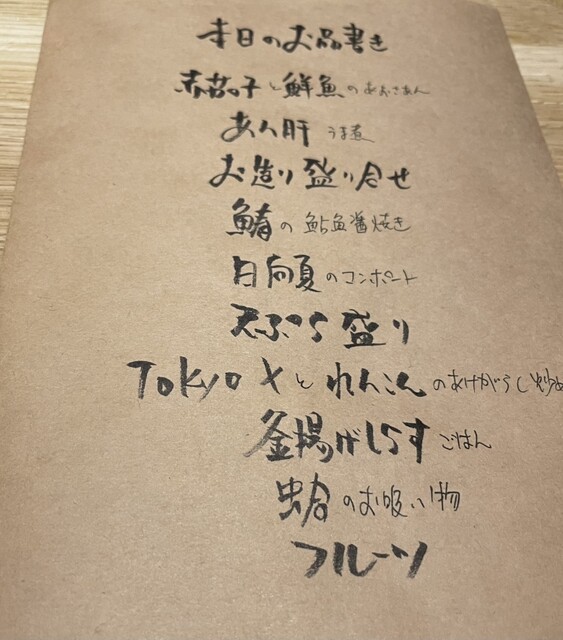 本日のお品書き
赤茄子と鮮魚のあおさあん
あん肝 うま煮
お造り盛り合せ
鰆の鮎魚醤焼き
日向夏のコンポート
天ぷら盛り
Tokyo Xとれんこんのあけがらし炒め
釜揚げしらすごはん
蛤のお吸い物
フルーツ